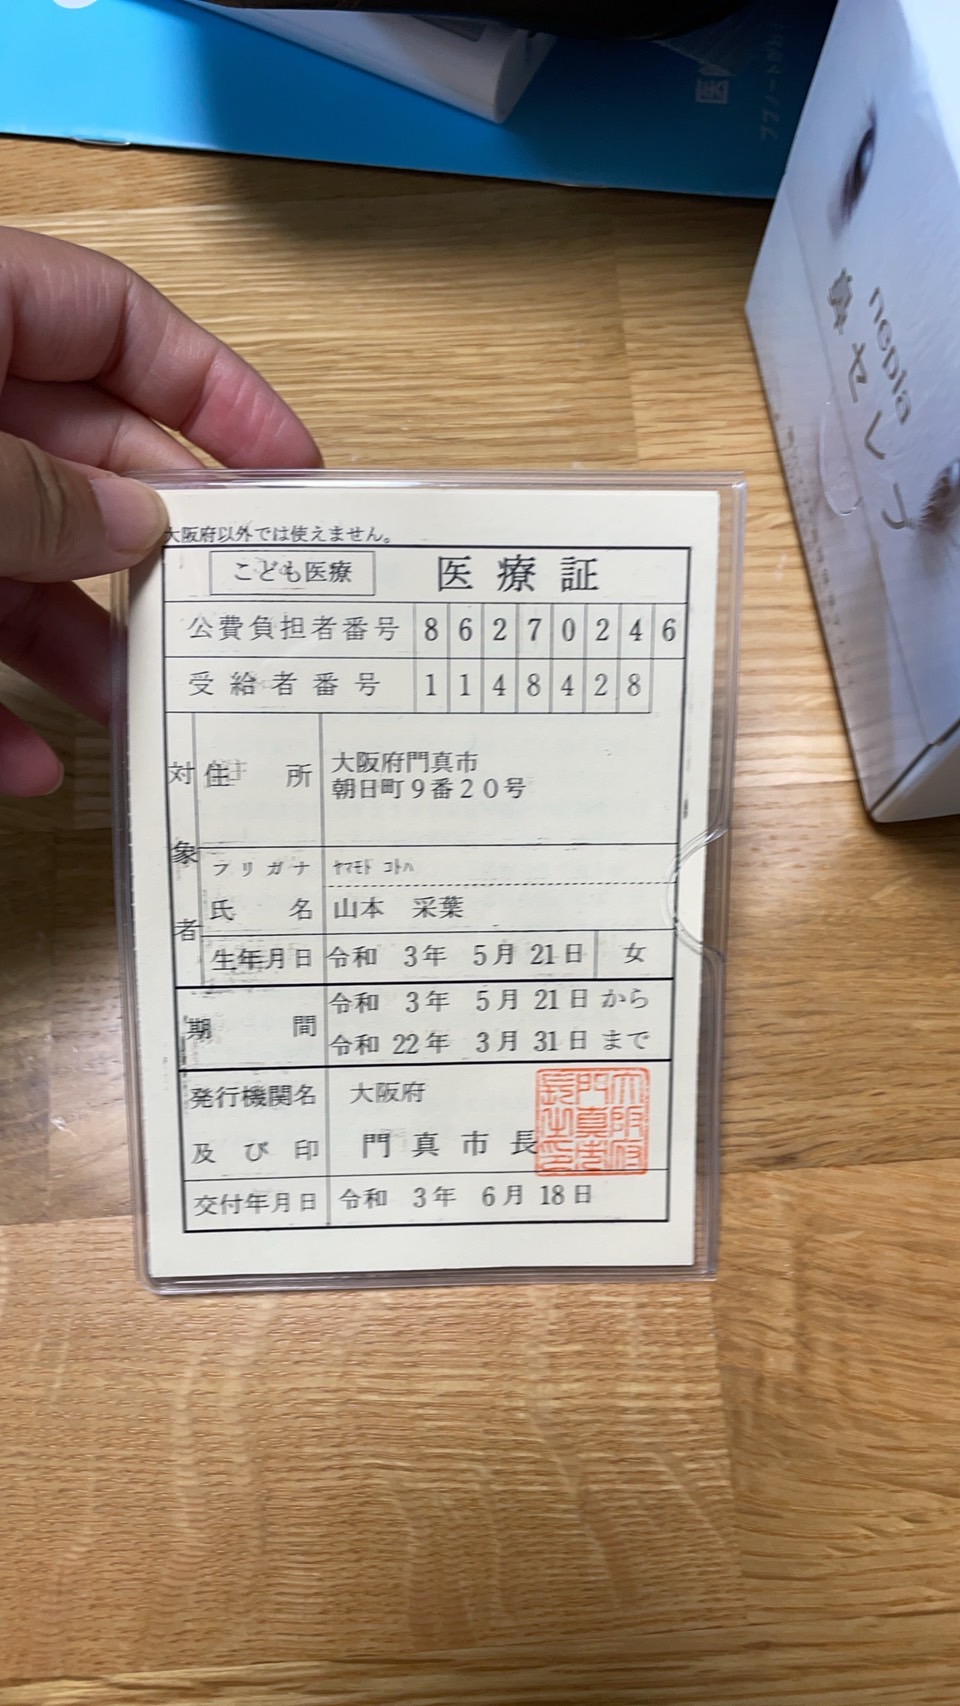 医
nepia
鼻セレブ
大阪府以外では使えません。
こども医療 医療証
公費負担者番号 8 6 2 7 0 2 4 6
受給者番号 1 1 4 8 4 2 8
対象者
住所 大阪府門真市
朝日町9番20号
フリガナ ヤマモト コトハ
氏名 山本 采葉
生年月日 令和 3年 5月 21日 女
期間 令和 3年 5月 21日 から
令和 22年 3月 31日 まで
発行機関名 大阪府
及び印 門真市長
大阪府門真市長之印
交付年月日 令和 3年 6月 18日